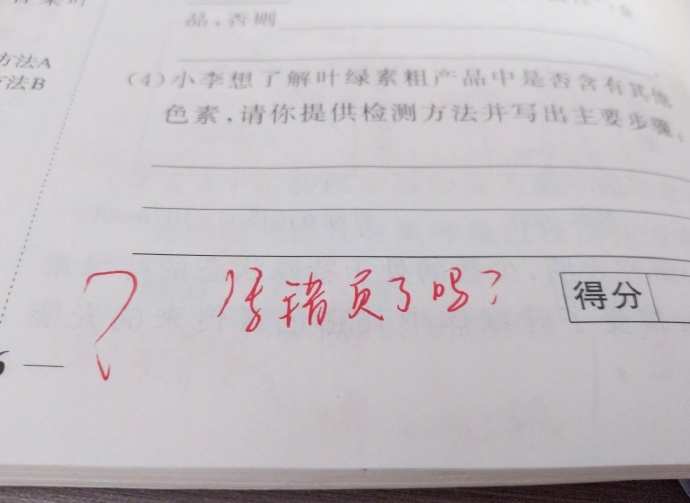 品,否则
方法A
法B
(4)小李想了解叶绿素粗产品中是否含有其他
色素,请你提供检测方法并写出主要步骤:
? 传错页了吗?
得分